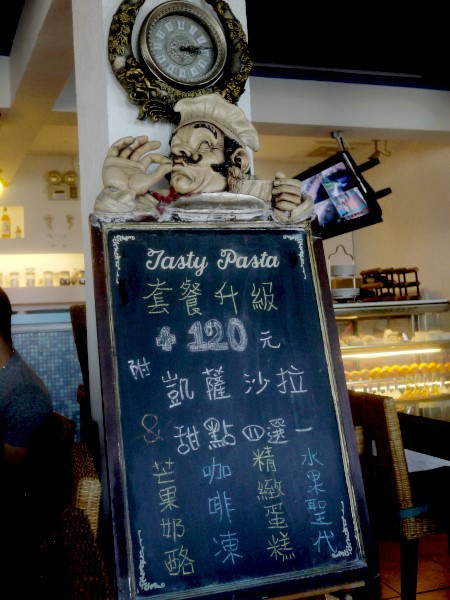 Tasty Pasta
套餐升級
+120元
附凱薩沙拉
&甜點四選一
芒果奶酪
咖啡凍
精緻蛋糕
水果聖代